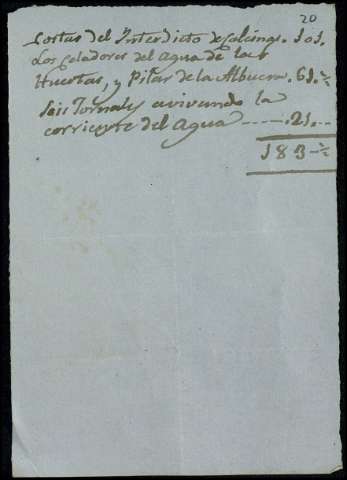 20
Costas del Interdicto de Colának. 101.
Los Celadores del agua de las
Huertas, y Pilar de la Albuera. 61. ½
Seis Jornal.s avivando la
corriente del Agua ---- . 21. --
183 - ½